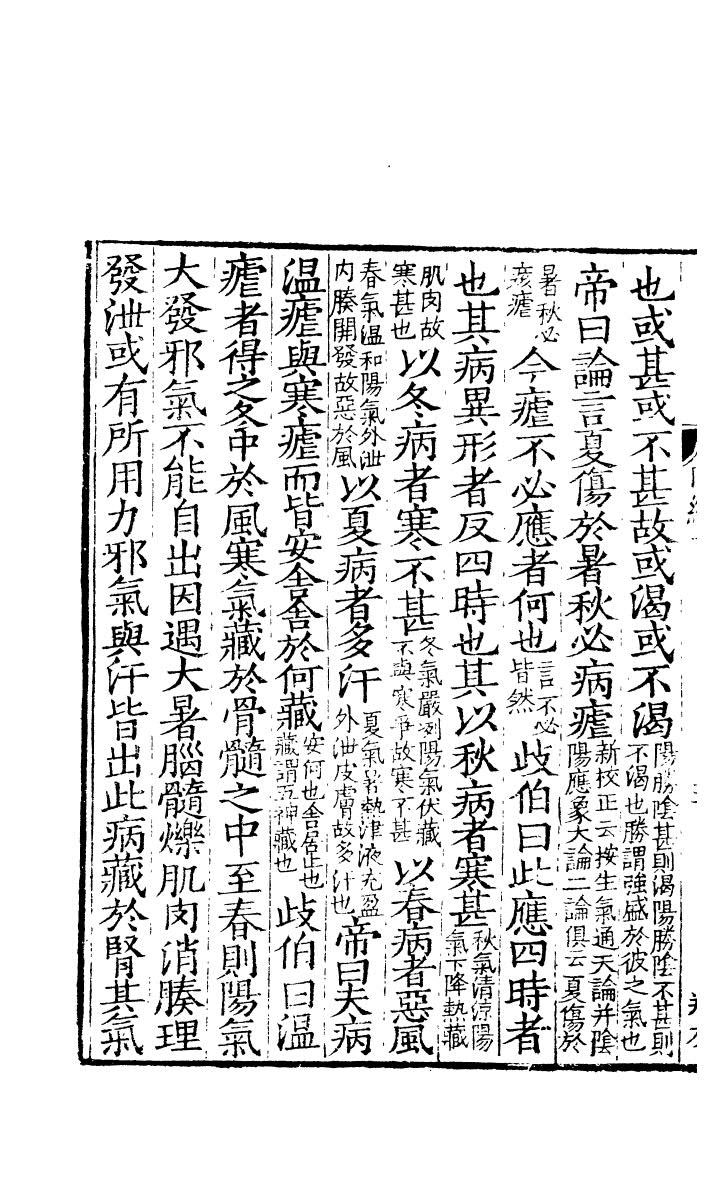 也或甚或不甚故或渴或不渴陽勝陰甚則渴陽勝陰不甚則不渴也勝謂強盛於彼之氣也
帝曰論言夏傷於暑秋必病瘧新校正云按生氣通天論并陰陽應象大論二論俱云夏傷於
暑秋必痎瘧今瘧不必應者何也言不必皆然歧伯曰此應四時者
也其病異形者反四時也其以秋病者寒甚秋氣清涼陽氣下降熱藏
肌肉故寒甚也以冬病者寒不甚冬氣嚴冽陽氣伏藏不與寒爭故寒不甚以春病者惡風
春氣温和陽氣外泄内腠開發故惡於風以夏病者多汗夏氣暑熱津液充盈外泄皮膚故多汗也帝曰夫病
温瘧與寒瘧而皆安舍舍於何藏安何也舍居止也藏謂五神藏也歧伯曰温
瘧者得之冬中於風寒氣藏於骨髓之中至春則陽氣
大發邪氣不能自出因遇大暑腦髓爍肌肉消腠理
發泄或有所用力邪氣與汗皆出此病藏於腎其氣